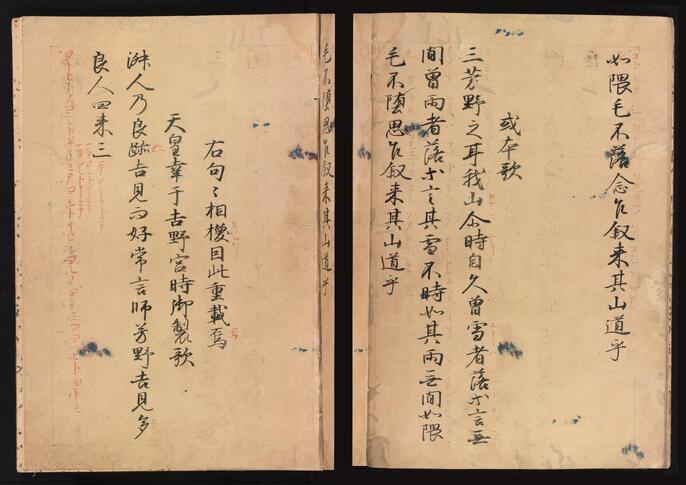 如隈毛不落念乍叙来其山道乎
或本歌
三芳野之耳我山尒時自久曽雪者落等言無
間曽雨者落等言其雪不時如其雨無間如隈
毛不堕思乍叙来其山道乎
毛不堕思乍叙来其山道乎
右句々相換因此重載焉
天皇幸于吉野宮時御製歌
淑人乃良跡吉見而好常言師芳野吉見多
良人四来三